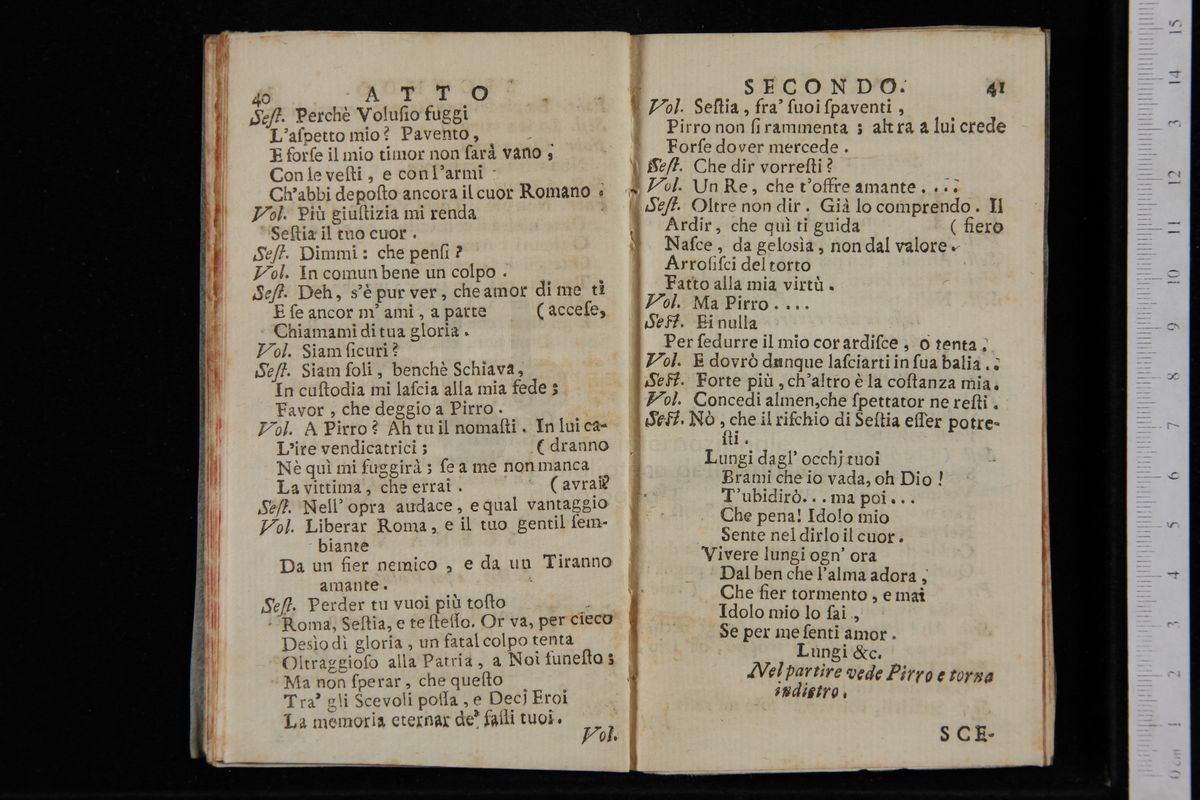 40 ATTO
Seſt. Perchè Voluſio fuggi
L'aſpetto mio? Pavento,
E forſe il mio timor non ſarà vano;
Con le veſti, e con l'armi
Ch'abbi depoſto ancora il cuor Romano.
Vol. Più giuſtizia mi renda
Seſtia il tuo cuor.
Seſt. Dimmi: che penſi?
Vol. In comun bene un colpo.
Seſt. Deh, s'è pur ver, che amor di me ti
E ſe ancor m'ami, a parte (acceſe,
Chiamami di tua gloria.
Vol. Siam ſicuri?
Seſt. Siam ſoli, benchè Schiava,
In cuſtodia mi laſcia alla mia fede;
Favor, che deggio a Pirro.
Vol. A Pirro? Ah tu il nomaſti. In lui ca-
L'ire vendicatrici; (dranno
Nè quì mi fuggirà; ſe a me non manca
La vittima, che errai. (avrai?
Seſt. Nell'opra audace, e qual vantaggio
Vol. Liberar Roma, e il tuo gentil ſem-
biante
Da un fier nemico, e da un Tiranno
amante.
Seſt. Perder tu vuoi più toſto
Roma, Seſtia, e te ſteſſo. Or va, per cieco
Desìo dì gloria, un fatal colpo tenta
Oltraggioſo alla Patria, a Noi funeſto;
Ma non ſperar, che queſto
Tra' gli Scevoli poſſa, e Decj Eroi
La memoria eternar de' faſſi tuoi.
Vol.
SECONDO. 41
Vol. Seſtia, fra' ſuoi ſpaventi,
Pirro non ſi rammenta; altra a lui crede
Forſe dover mercede.
Seſt. Che dir vorreſti?
Vol. Un Re, che t'offre amante....
Seſt. Oltre non dir. Già lo comprendo. Il
Ardir, che quì ti guida (fiero
Naſce, da gelosìa, non dal valore.
Arroſiſci del torto
Fatto alla mia virtù.
Vol. Ma Pirro....
Seſt. Ei nulla
Per ſedurre il mio cor ardiſce, o tenta.
Vol. E dovrò dunque laſciarti in ſua balìa..
Seſt. Forte più, ch'altro è la coſtanza mia.
Vol. Concedi almen, che ſpettator ne reſti.
Seſt. Nò, che il riſchio di Seſtia eſſer potre-
ſti.
Lungi dagl' occhj tuoi
Brami che io vada, oh Dio!
T'ubidirò... ma poi...
Che pena! Idolo mio
Sente nel dirlo il cuor.
Vivere lungi ogn' ora
Dal ben che l'alma adora,
Che fier tormento, e mai
Idolo mio lo ſai,
Se per me ſenti amor.
Lungi &c.
Nel partire vede Pirro e torna
indietro.
SCE-